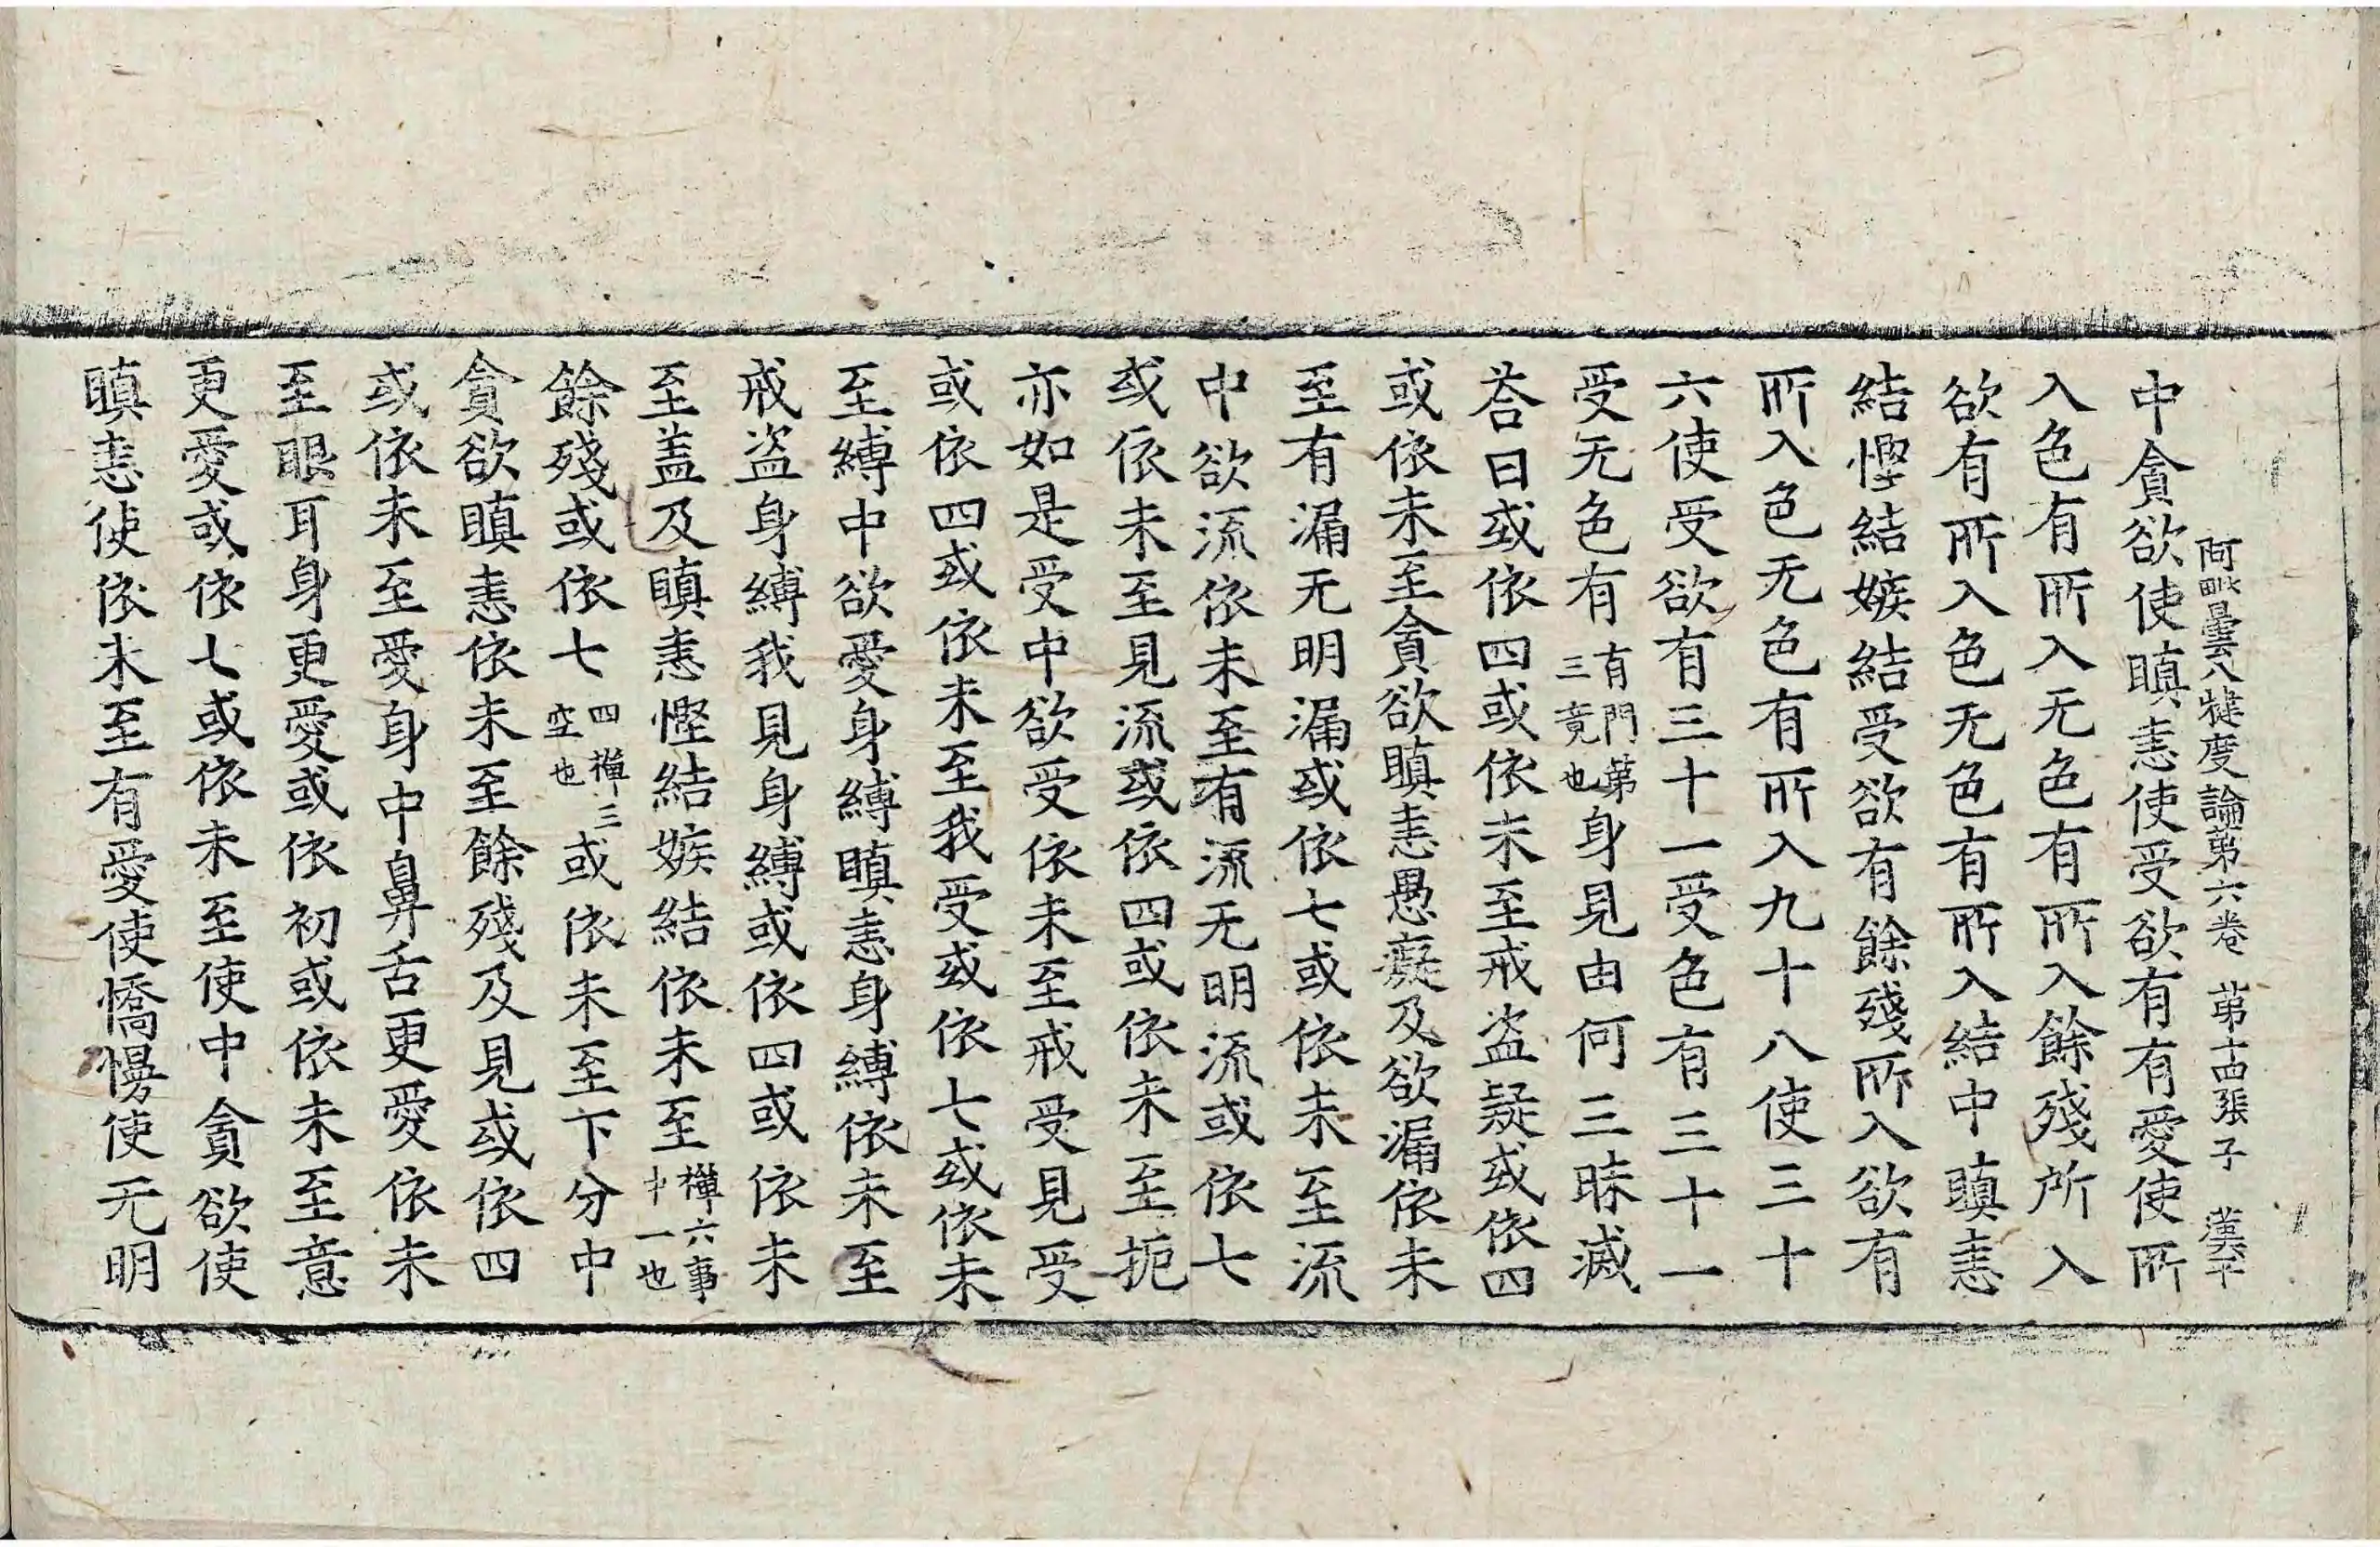 阿毗曇八犍度論第六卷 第十四張子 漢平
中貪欲使瞋恚使受欲有有愛使所
入色有所入无色有所入餘殘所入
欲有所入色无色有所入結中瞋恚
結慳結嫉結受欲有餘殘所入欲有
所入色无色有所入九十八使三十
六使受欲有三十一受色有三十一
受无色有有門第三竟也身見由何三昧滅
荅曰或依四或依未至戒盗疑或依四
或依未至貪欲瞋恚愚癡及欲漏依未
至有漏无明漏或依七或依未至流
中欲流依未至有流无明流或依七
或依未至見流或依四或依未至扼
亦如是受中欲受依未至戒受見受
或依四或依未至我受或依七或依未
至縛中欲愛身縛瞋恚身縛依未至
戒盗身縛我見身縛或依四或依未
至盖及瞋恚慳結嫉結依未至禪六事十一也
餘殘或依七四禪三空也或依未至下分中
貪欲瞋恚依未至餘殘及見或依四
或依未至愛身中鼻舌更愛依未
至眼耳身更愛或依初或依未至意
更愛或依七或依未至使中貪欲使
瞋恚使依未至有愛使憍慢使无明